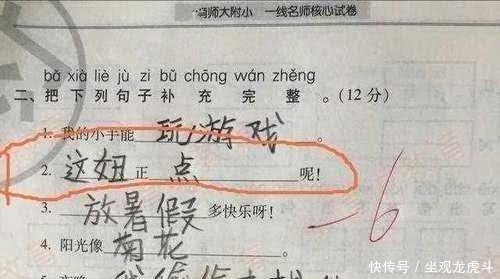 冯师大附小 一线名师核心试卷
bǎ xià liè jù zi bǔ chōng wán zhěng
二、把下列句子补充完整。(12分)
1. 我的小手能 玩游戏 。
2. 这妞 正 点 呢!
3. 放暑假 多快乐呀!
-6
4. 阳光像 菊花
快传号 / 坐观龙虎斗